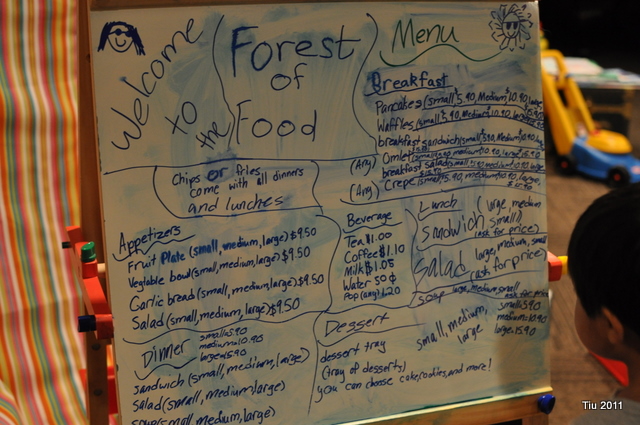 Welcome
to
the
Forest
of
Food
Menu
Breakfast
Pancakes (small $5.90, Medium $10.90, large
Waffles (small $5.90, Medium $10.90, large
breakfast sandwich (small $5.90, Medium 10.90,
(Any) Omlet
breakfast salad
(Any) Crepe (small 5.90, medium 10.90, large,
Chips or fries
come with all dinners
and lunches
Appetizers
Fruit Plate (small, medium, large) $9.50
Vegtable bowl (small, medium, large) $9.50
Garlic bread (small, medium, large) $9.50
Salad (small, medium, large) $9.50
Beverage
Tea $1.00
Coffee $1.10
Milk $1.05
Water 50¢
Pop (any) 1.20
Lunch
sandwich (large, medium
small)
(ask for price)
salad large, medium, small
(ask for price)
soup large, medium, small
ask for price
Dinner
small=5.90
medium=10.90
large=15.90
sandwich (small, medium, large)
Salad (small, medium, large)
soup (small, medium, large)
Dessert
small, medium,
large
small=5.90
medium=10.90
large=15.90
dessert tray
(tray of desserts)
you can choose cake, cookies, and more!
Tiu 2011